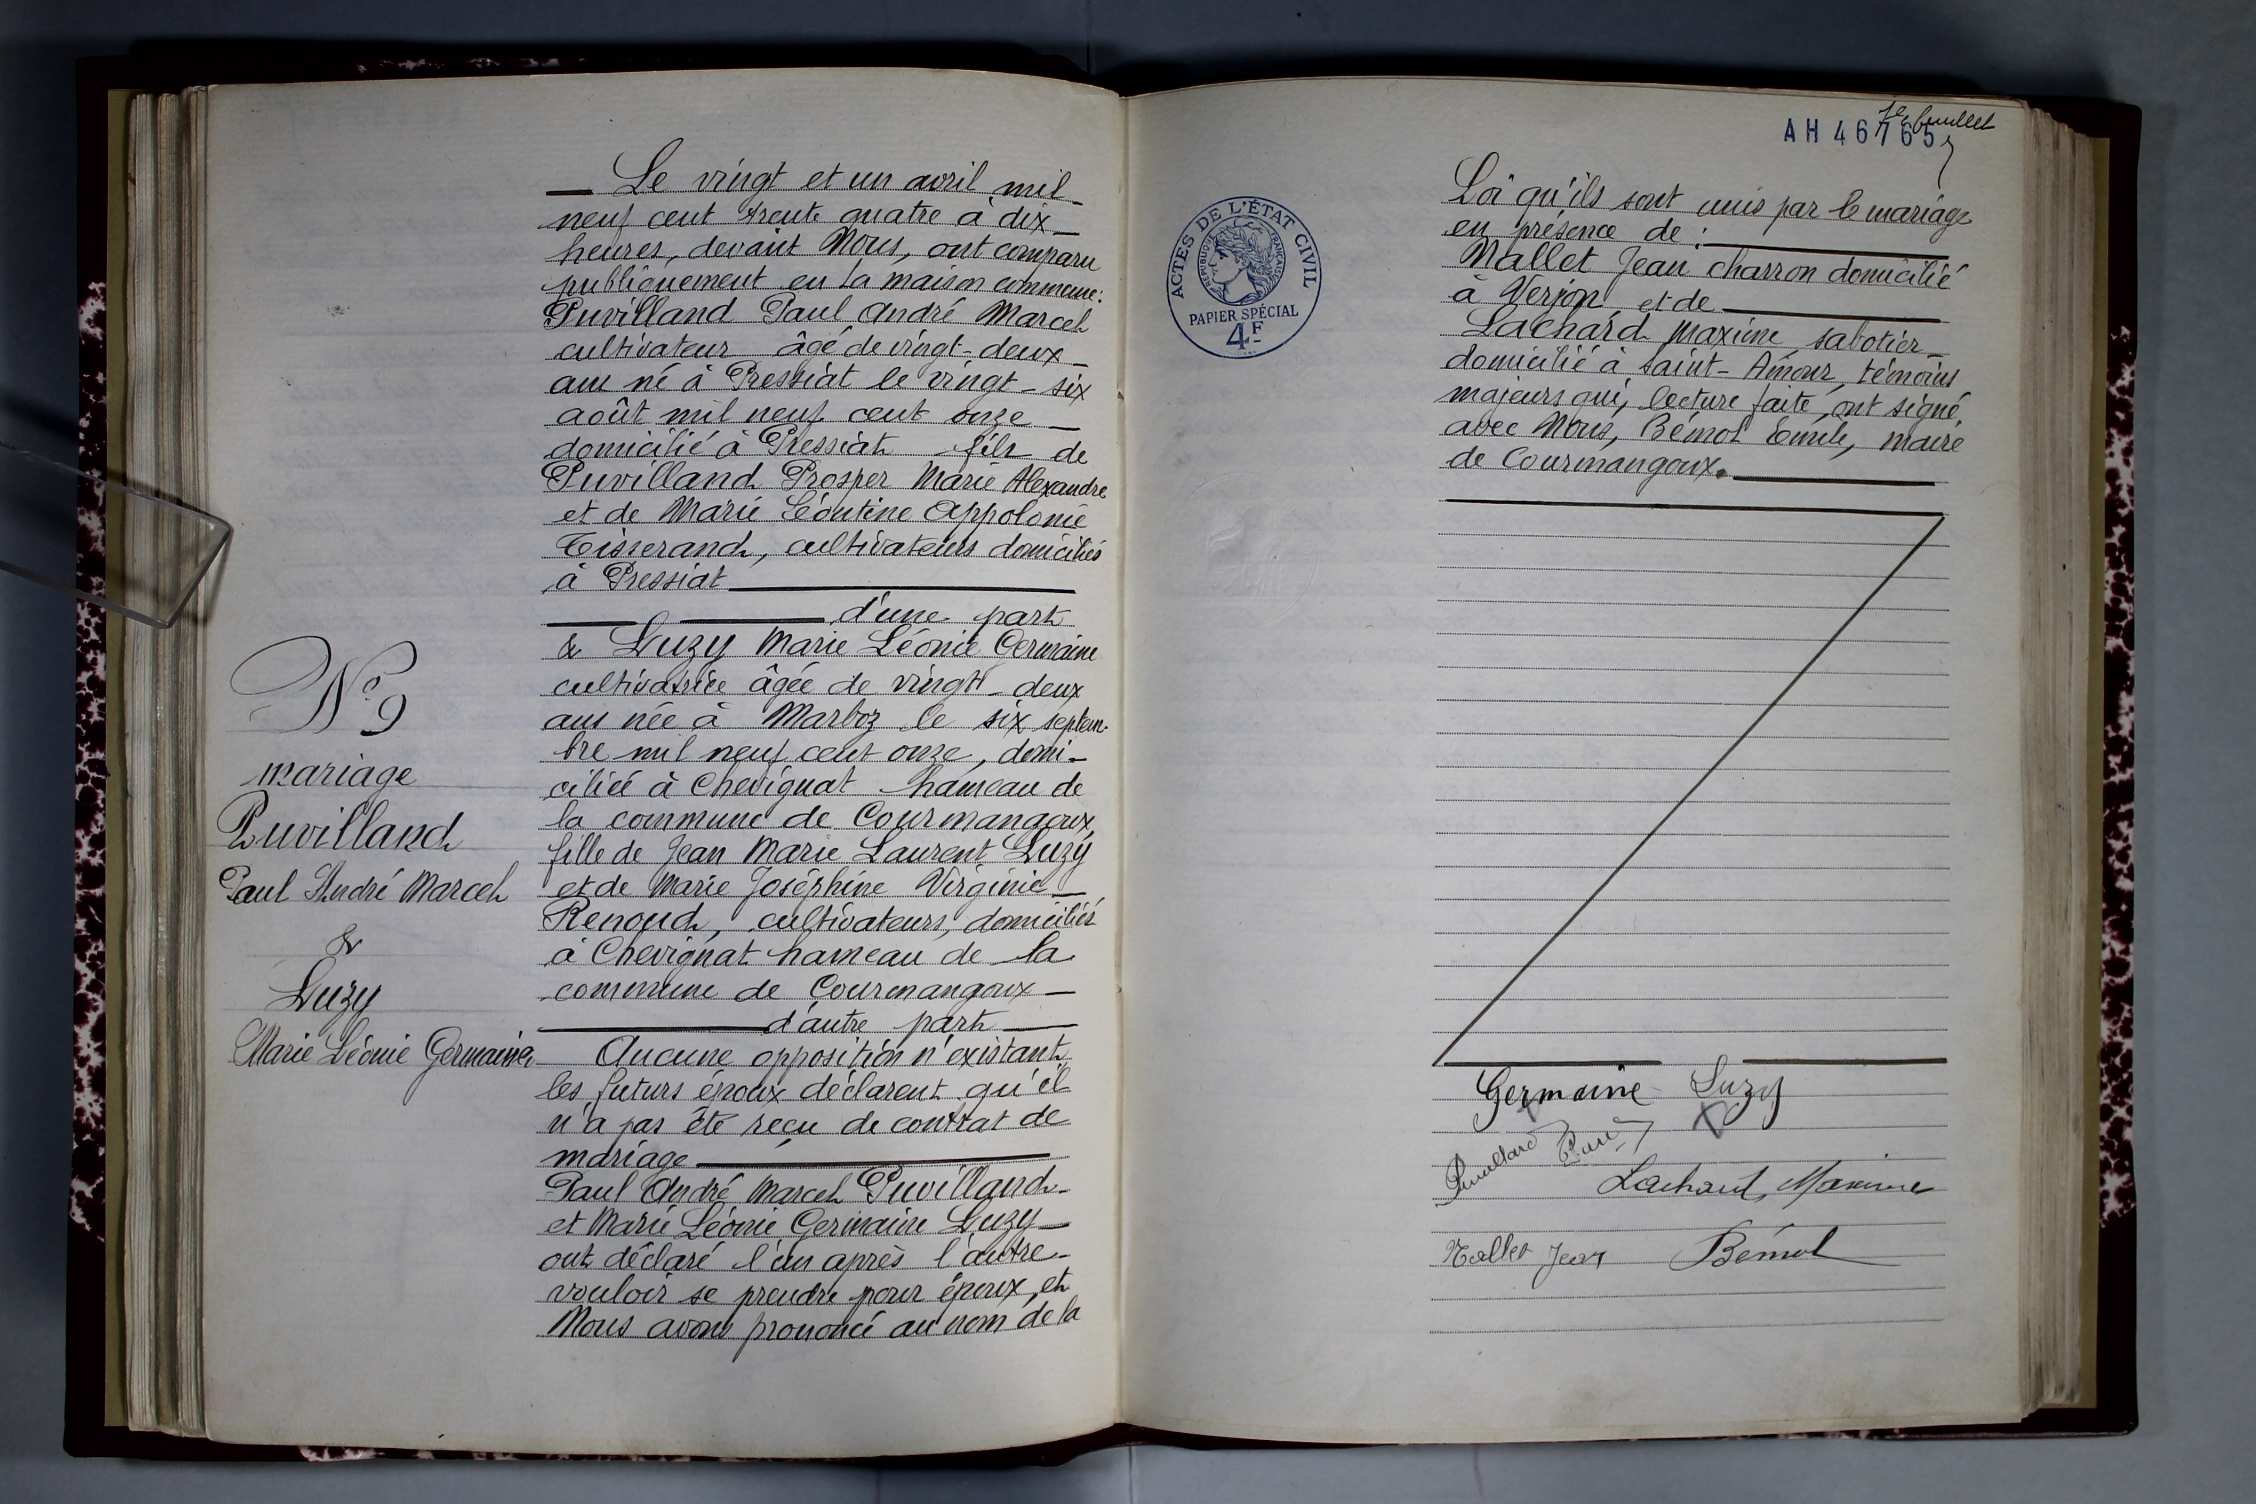 Le vingt et un avril mil
neuf cent trente quatre à dix
heures, devant Nous, ont comparu
publiquement en la maison commune:
Puvilland Paul André Marcel
cultivateur âgé de vingt-deux
ans né à Pressiat le vingt-six
août mil neuf cent onze
domicilié à Pressiat fils de
Puvilland Prosper Marie Alexandre
et de Marie Léontine Appolonie
Tisserand, cultivateurs domiciliés
à Pressiat
d'une part
& Luzy Marie Léonie Germaine
cultivatrice âgée de vingt-deux
ans née à Marboz le six septem-
bre mil neuf cent onze, domi-
ciliée à Chevignat hameau de
la commune de Courmangoux,
fille de Jean Marie Laurent Luzy
et de Marie Joséphine Virginie
Renoud, cultivateurs, domiciliés
à Chevignat hameau de la
commune de Courmangoux
d'autre part
Aucune opposition n'existant
les futurs époux déclarent qu'il
n'a pas été reçu de contrat de
mariage
Paul André Marcel Puvilland
et Marie Léonie Germaine Luzy
ont déclaré l'un après l'autre
vouloir se prendre pour époux, et
Nous avons prononcé au nom de la
N° 9
mariage
Puvilland
Paul André Marcel
&
Luzy
Marie Léonie Germaine
feuillet
AH 46765
ACTES DE L'ÉTAT CIVIL
RÉPUBLIQUE FRANÇAISE
PAPIER SPÉCIAL
4F
Loi qu'ils sont unis par le mariage
en présence de :
Nallet Jean charron domicilié
à Verjon et de
Lachard Maxime sabotier
domicilié à Saint-Amour, témoins
majeurs qui, lecture faite, ont signé
avec Nous, Bémol Emile, maire
de Courmangoux.
Germaine Luzy
Puvilland Paul
Lachard Maxime
Nallet Jean Bémol